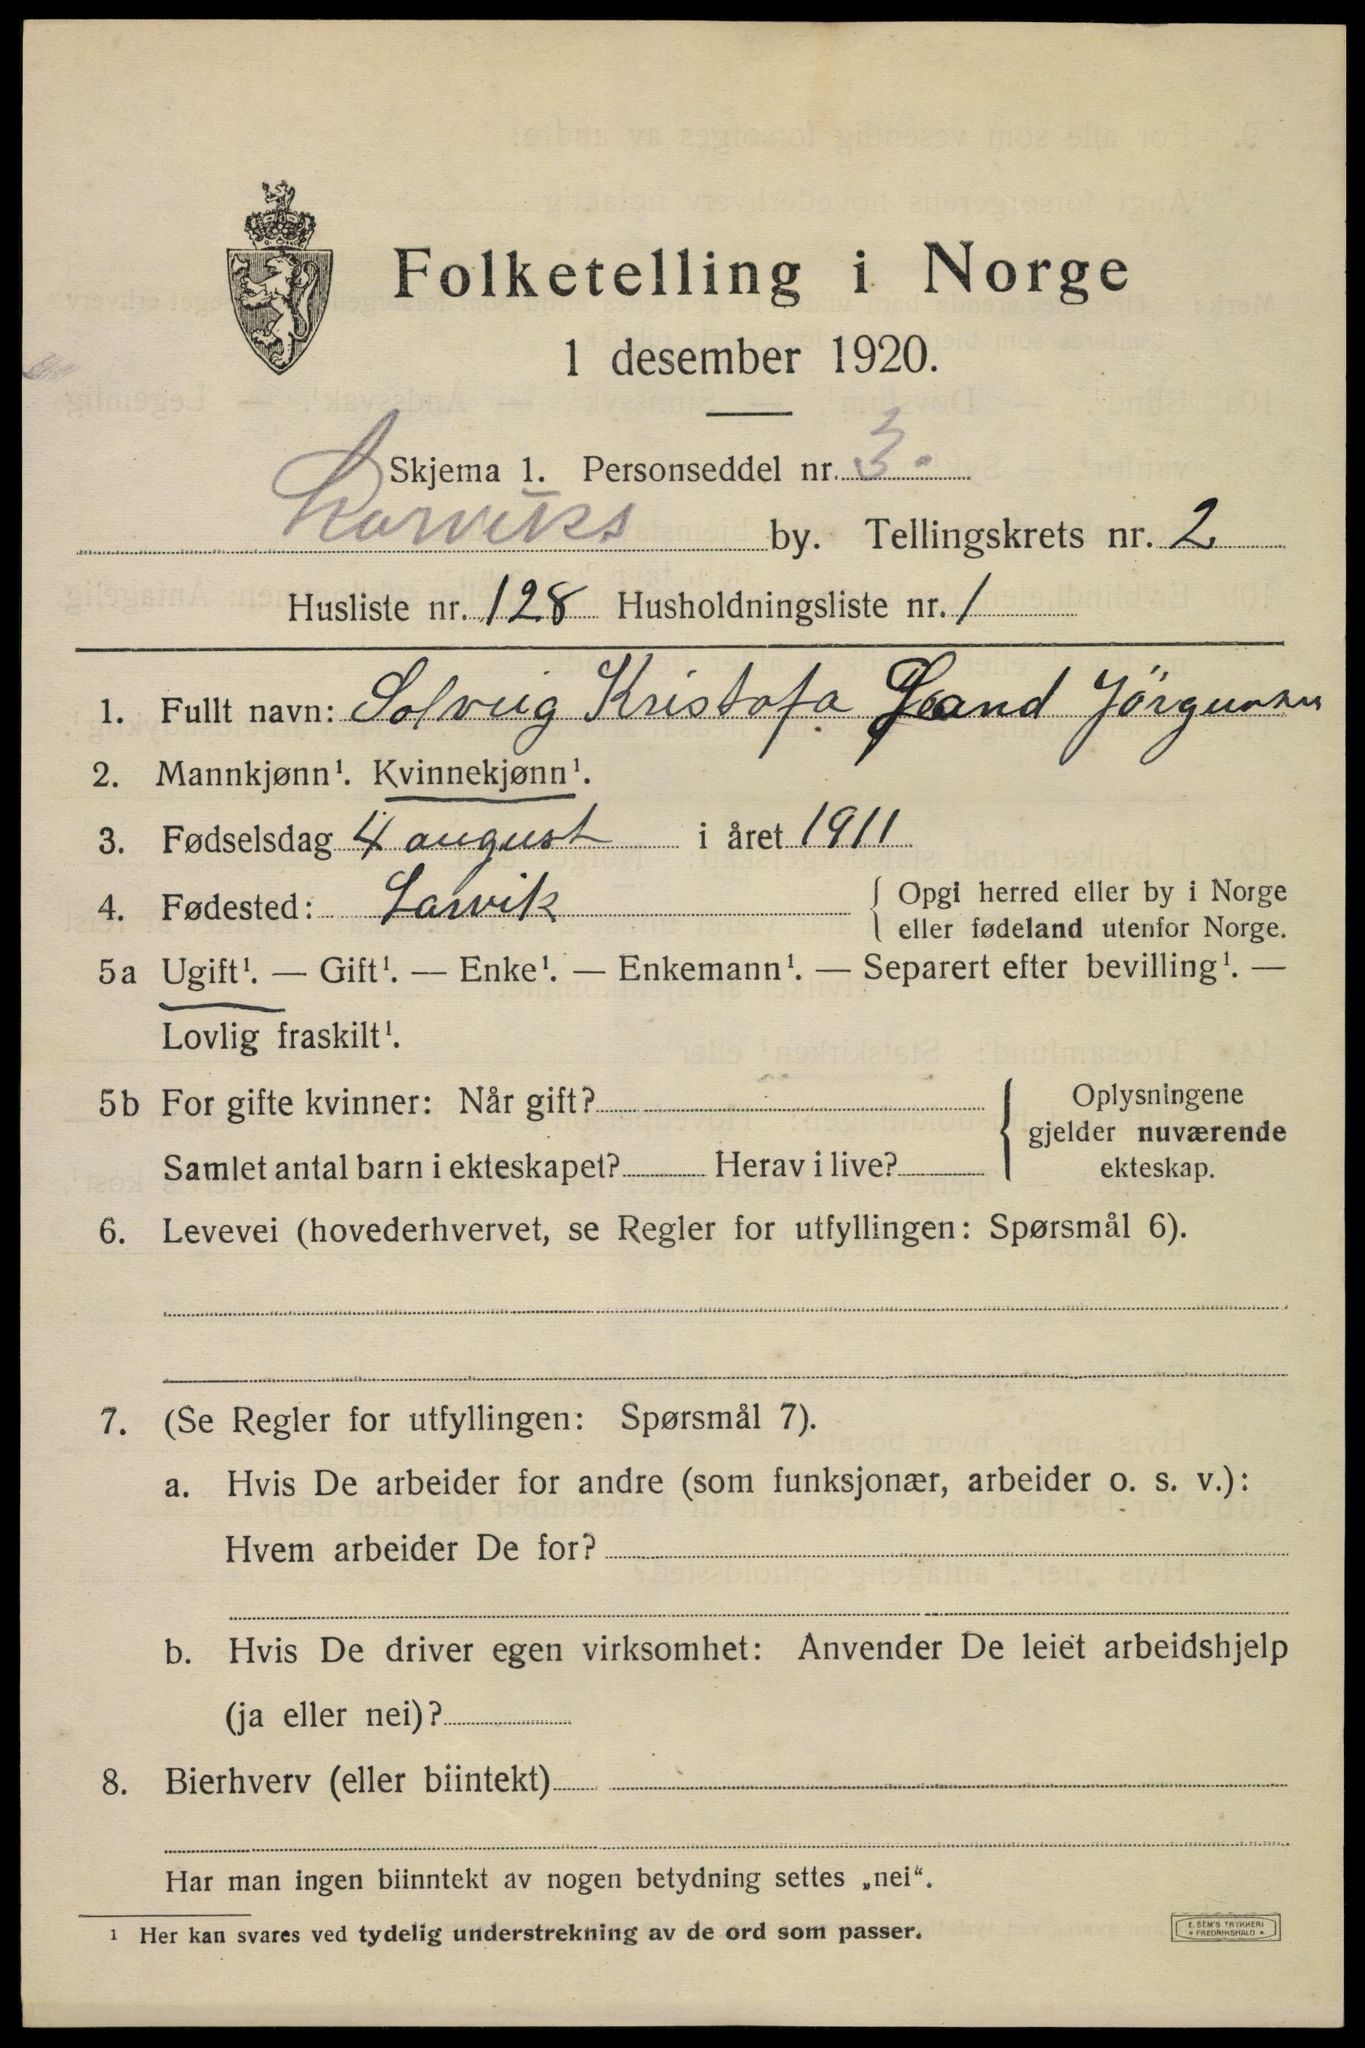 Folketelling i Norge
1 desember 1920.
Skjema 1. Personseddel nr. 3.
Larviks by. Tellingskrets nr. 2
Husliste nr. 128 Husholdningsliste nr. 1
1. Fullt navn: Solveig Kristofa Sand Jörgensen
2. Mannkjønn¹. Kvinnekjønn¹.
3. Fødselsdag 4 august i året 1911
4. Fødested: Larvik { Opgi herred eller by i Norge
eller fødeland utenfor Norge.
5a Ugift¹. — Gift¹. — Enke¹. — Enkemann¹. — Separert efter bevilling¹. —
Lovlig fraskilt¹.
5b For gifte kvinner: Når gift? { Oplysningene
gjelder nuværende
Samlet antal barn i ekteskapet? Herav i live? ekteskap.
6. Levevei (hovederhvervet, se Regler for utfyllingen: Spørsmål 6).
7. (Se Regler for utfyllingen: Spørsmål 7).
a. Hvis De arbeider for andre (som funksjonær, arbeider o. s. v.):
Hvem arbeider De for?
b. Hvis De driver egen virksomhet: Anvender De leiet arbeidshjelp
(ja eller nei)?
8. Bierhverv (eller biintekt)
Har man ingen biinntekt av nogen betydning settes „nei“.
¹ Her kan svares ved tydelig understrekning av de ord som passer.
E. SEM'S TRYKKERI
* FREDRIKSHALD *